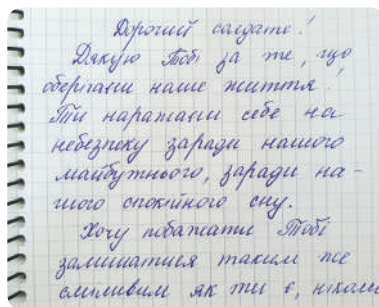 Дорогий солдате!
Дякую Тобі за те, що
оберігаєш наше життя!
Ти наражаєш себе на
небезпеку заради нашого
майбутнього, заради на-
шого спокійного сну.
Хочу побажати Тобі
залишатися таким же
сміливим як ти є, ніколи